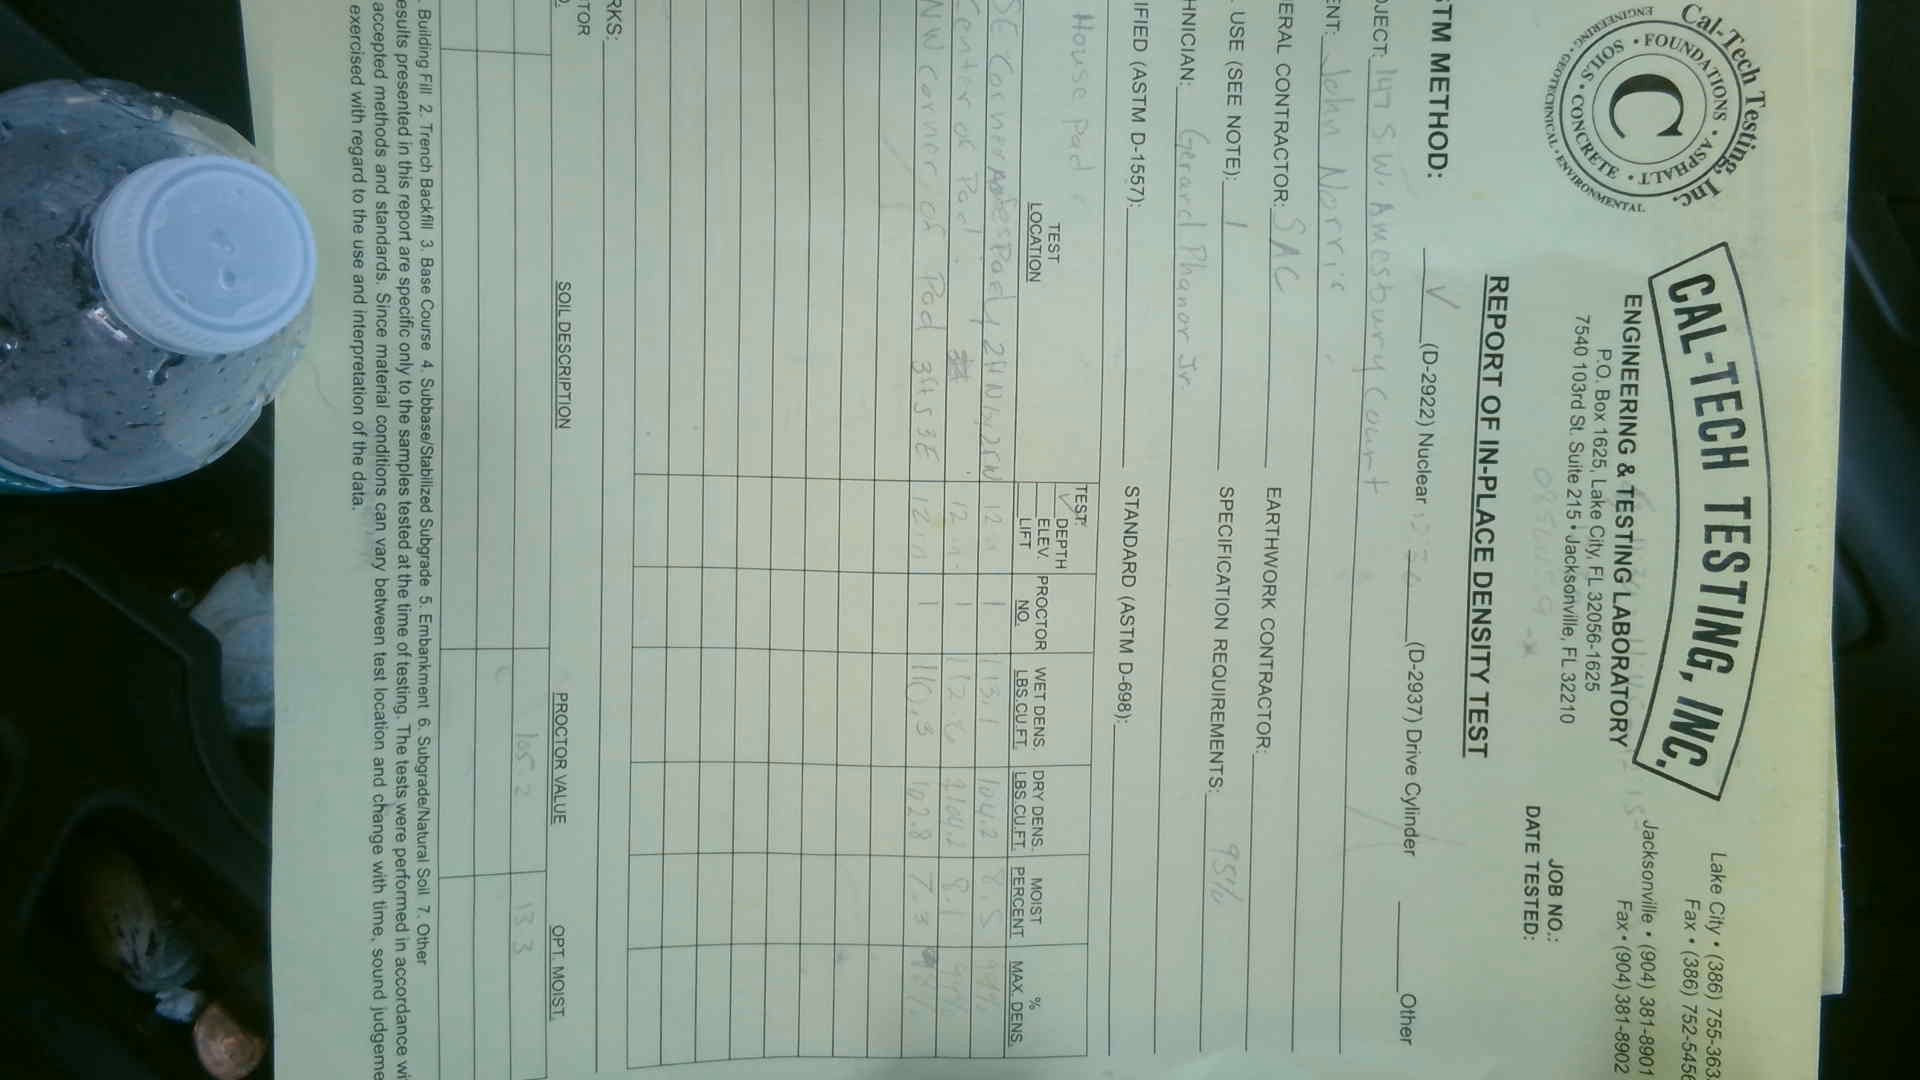 Cal-Tech Testing, Inc.
• FOUNDATIONS • ASPHALT • CONCRETE • SOILS
ENGINEERING • GEOTECHNICAL • ENVIRONMENTAL
C
CAL-TECH TESTING, INC.
ENGINEERING & TESTING LABORATORY
P.O. Box 1625, Lake City, FL 32056-1625
7540 103rd St. Suite 215 • Jacksonville, FL 32210
Lake City • (386) 755-363
Fax • (386) 752-5456
Jacksonville • (904) 381-8901
Fax • (904) 381-8902
JOB NO.:
DATE TESTED:
REPORT OF IN-PLACE DENSITY TEST
STM METHOD: √ (D-2922) Nuclear (D-2937) Drive Cylinder Other
OJECT: 147 S.W. Amesbury Court
ENT: John Norris
ERAL CONTRACTOR: SAC EARTHWORK CONTRACTOR:
USE (SEE NOTE): 1 SPECIFICATION REQUIREMENTS: 95%
HNICIAN: Gerard Phanor Jr.
IFIED (ASTM D-1557): STANDARD (ASTM D-698):
TEST LOCATION TEST: √ DEPTH ELEV. LIFT PROCTOR NO. WET DENS. LBS.CU.FT. DRY DENS. LBS.CU.FT. MOIST PERCENT % MAX. DENS.
House pad
SE Corner Pad 12 1 113.1 104.2 8.5 99%
Center of Pad 12 in 1 112.6 104.2 8.1 99%
NW Corner of Pad 3ft S 3E 12 in 1 110.3 102.8 7.3 98%
RKS:
TOR SOIL DESCRIPTION PROCTOR VALUE OPT. MOIST.
105.2 13.3
. Building Fill 2. Trench Backfill 3. Base Course 4. Subbase/Stabilized Subgrade 5. Embankment 6. Subgrade/Natural Soil 7. Other
esults presented in this report are specific only to the samples tested at the time of testing. The tests were performed in accordance wi
accepted methods and standards. Since material conditions can vary between test location and change with time, sound judgeme
exercised with regard to the use and interpretation of the data.